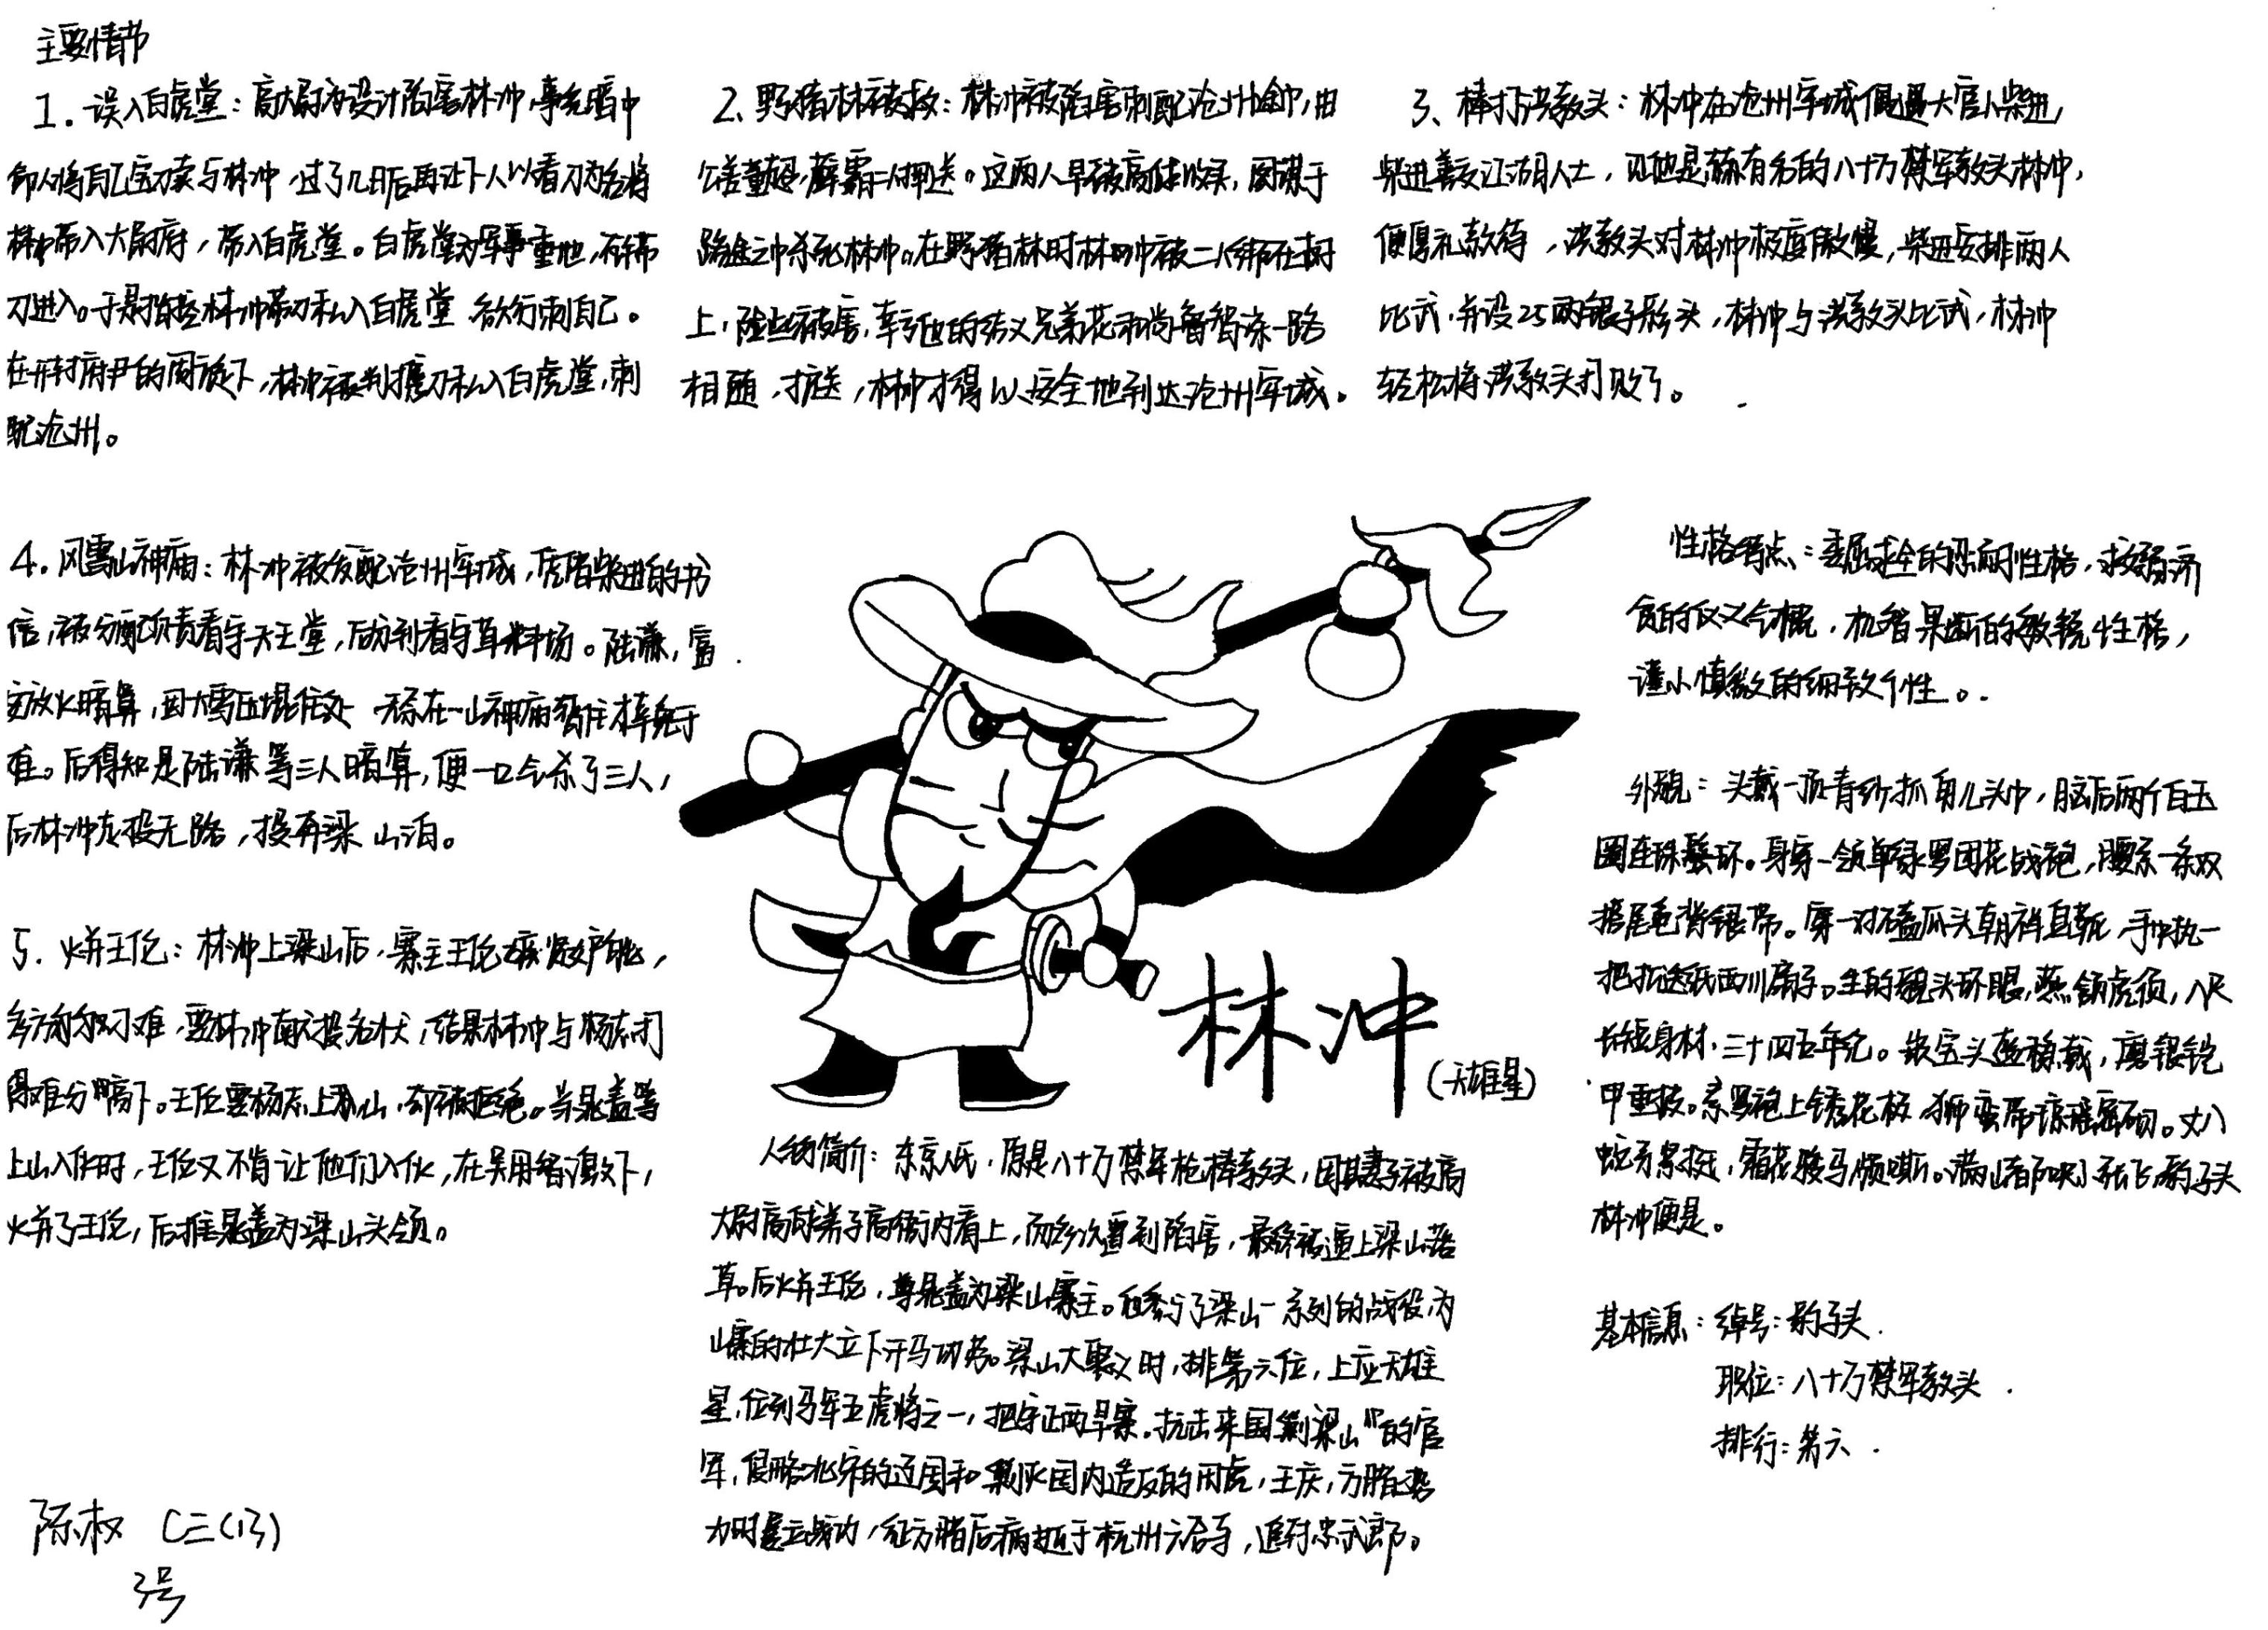 主要情节
1. 误入白虎堂：高太尉为设计陷害林冲，事先暗中
命人将自己宝刀卖与林冲，过了几日后再让下人以看刀为名将
林冲带入太尉府，带入白虎堂。白虎堂为军事重地，不许带
刀进入。于是指控林冲带刀私入白虎堂 欲行刺自己。
在开封府尹的周旋下，林冲被判携刀私入白虎堂，刺
配沧州。
2、野猪林被救：林冲被陷害刺配沧州途中，由
公差董超，薛霸二人押送。这两人早被高俅收买，图谋于
路途之中杀死林冲。在野猪林时林冲被二人绑在树
上，险些被害，幸亏他的结义兄弟花和尚鲁智深一路
相随，护送，林冲才得以安全地到达沧州牢城。
3、棒打洪教头：林冲在沧州牢城偶遇大官人柴进，
柴进喜交江湖人士，见他是赫有名的八十万禁军教头林冲，
便厚礼款待，洪教头对林冲极度傲慢，柴进安排两人
比武，并设25两银子彩头，林冲与洪教头比武，林冲
轻松将洪教头打败了。
4. 风雪山神庙：林冲被发配沧州牢城，凭借柴进的书
信，被分配负责看守天王堂，后分到看守草料场。陆谦，富
安放火暗算，因大雪压塌住处 在一山神庙暂住才幸免于
难。后得知是陆谦等三人暗算，便一口气杀了三人，
后林冲走投无路，投奔梁山泊。
5. 火并王伦：林冲上梁山后，寨主王伦嫉贤妒能，
多方刁难，要林冲献投名状，结果林冲与杨志打
得难分高下。王伦要杨志上梁山，却被拒绝。当晁盖等
上山入伙时，王伦又不肯让他们入伙，在吴用智激下，
火并了王伦，后推晁盖为梁山头领。
林冲
(天雄星)
人物简介：东京人氏，原是八十万禁军枪棒教头，因其妻子被高
太尉高俅养子高衙内看上，而多次遭到陷害，最终被逼上梁山落
草。后火并王伦，尊晁盖为梁山寨主。他参与了梁山一系列的战役，为
山寨的壮大立下汗马功劳。梁山大聚义时，排第六位，上应天雄
星，位列马军五虎将之一，把守正西旱寨，抗击来围剿梁山的官
军，侵略北宋的辽国和剿灭国内造反的田虎，王庆，方腊势
力时屡立战功，征方腊后病逝于杭州六合寺，追封忠武郎。
性格特点：委屈求全的隐忍性格，救弱济
贫的仗义气概，机智果断的敏锐性格，
谨小慎微的细致个性。
外貌：头戴一顶青纱抓角儿头巾，脑后两个白玉
圈连珠鬓环。身穿一领单绿罗团花战袍，腰系一条双
搭尾龟背银带。穿一对磕瓜头朝样皂靴，手中执一
把折迭纸西川扇子。生的豹头环眼，燕颔虎须，八尺
长短身材，三十四五年纪。嵌宝头盔稳戴，磨银铠
甲重披。素罗袍上绣花枝，狮蛮带琼瑶密砌。丈八
蛇矛紧挺，霜花骏马频嘶。满山都唤小张飞，豹子头
林冲便是。
基本信息：绰号：豹子头.
职位：八十万禁军教头.
排行：第六.
陈权 C三(13)
3号